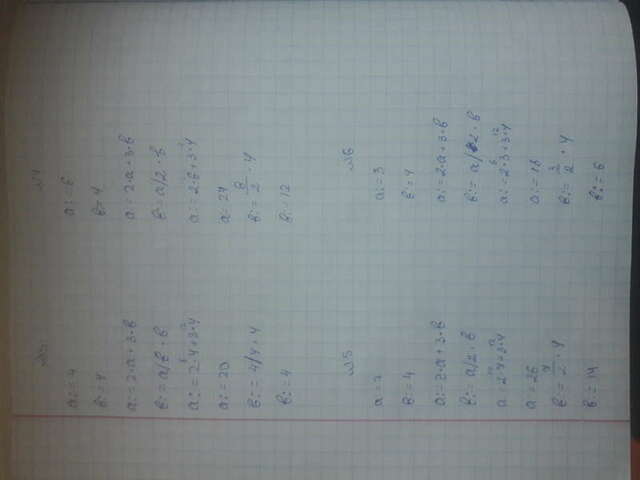 №3
a:=4
в:=4
a:=2*a+3*в
в:=a/в*в
a:=2*4+3*4
8 12
a:=20
в:=4/4*4
в:=4
№4
a:=6
в=4
a:=2*a+3*в
в=a/2*в
a:=2*6+3*4
a=24
в:=6/2*4
в:=12
№5
a=7
в:=4
a:=2*a+3*в
в:=a/2*в
a=2*7+3*4
14 12
a=26
в:=7/2*4
в:=14
№6
a:=3
в:=4
a:=2*a+3*в
в:=a/2*в
a:=2*3+3*4
6 12
a:=18
в:=3/2*4
в:=6